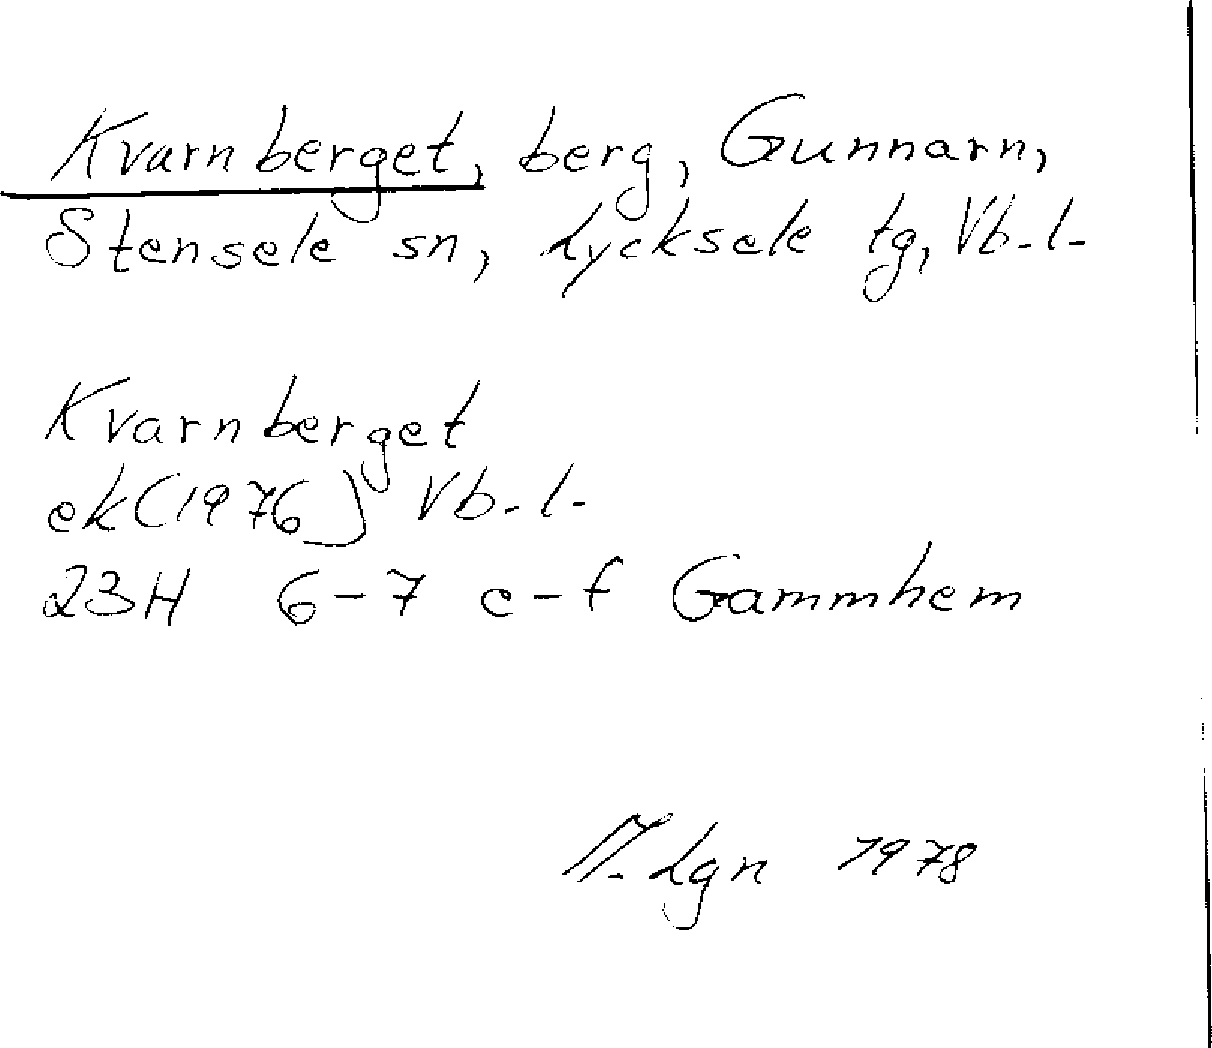 Kvarnberget, berg, Gunnarn,
Stensele sn, Lycksele tg, Vb. l.
Kvarnberget
ek (1976) Vb. l.
23H 6-7 e-f Gammhem
M. Lgn 1978